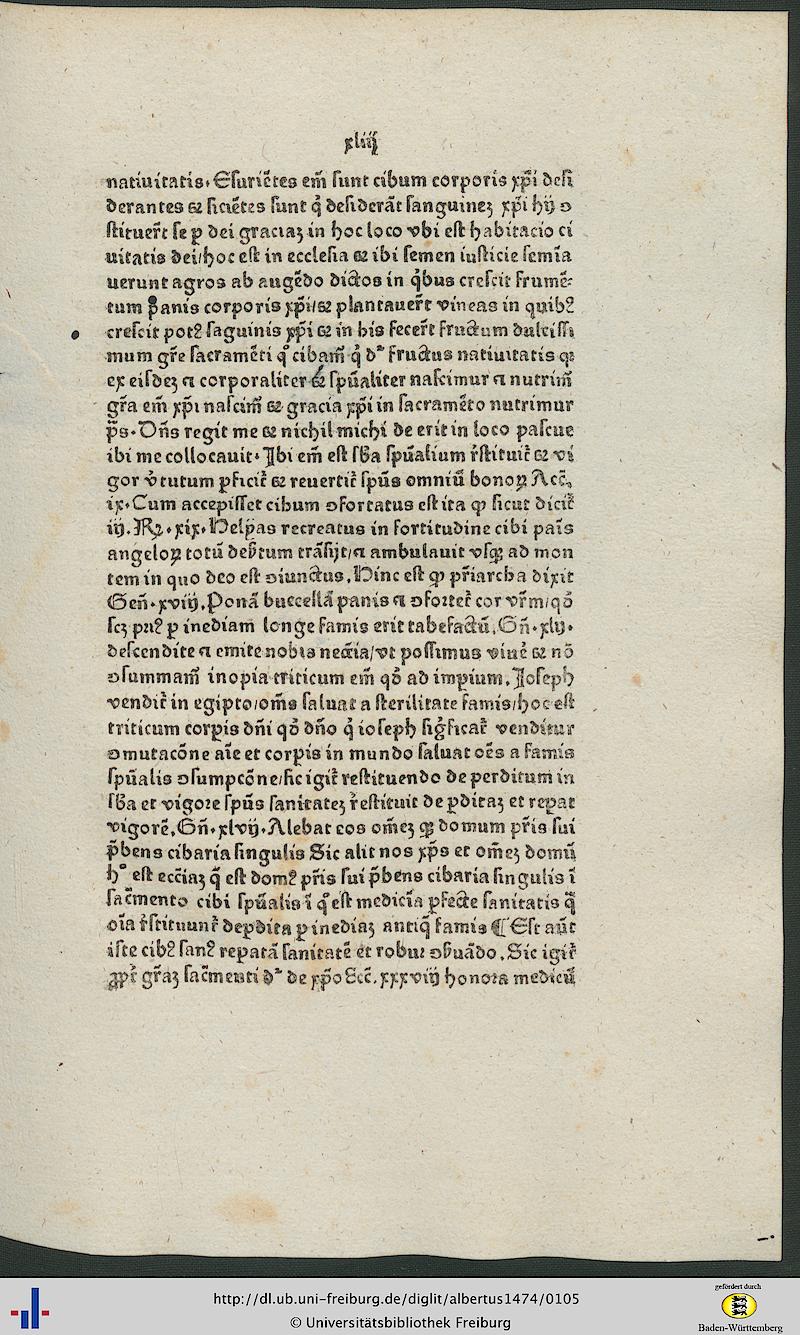 xliij
natiuitatis. Esuriẽtes em̃ sunt cibum corporis xp̃i desi
derantes ⁊ siciẽtes sunt q̇ desiderãt sanguineꝫ xp̃i hij ꝯ
stituer̃t se ꝑ dei graciaꝫ in hoc loco vbi est habitacio ci
uitatis dei/hoc est in ecclesia ⁊ ibi semen iusticie semĩa
uerunt agros ab augẽdo dictos in q̇bus crescit frumẽ⸗
tum panis corporis xp̃i/⁊ plantauer̃t vineas in quibꝰ
crescit potꝰ sãguinis xp̃i ⁊ in his fecer̃t fructum dulcissi
mum gr̃e sacramẽti qͦ cibam̃ q̇ dꝛ fructus natiuitatis ꝙ
ex eisdeꝫ a corporaliter ⁊ spũaliter nascimur a nutrim̃
gr̃a em̃ xp̃i nascim̃ ⁊ gracia xp̃i in sacramẽto nutrimur
p̃s. Dñs regit me ⁊ nichil michi de erit in loco pascue
ibi me collocauit. Ibi em̃ est sb̃a spũalium r̃stituit̃ ⁊ vi
gor v̓tutum ꝑficit̃ ⁊ reuertit̃ spũs omniũ bonoꝝ Acc̃.
ix. Cum accepisset cibum ꝯfortatus est ita ꝙ sicut dicit̃
iij. Rꝝ. xix. Helyas recreatus in fortitudine cibi pais
angeloꝝ totũ deb̃tum trãsijt/a ambulauit vsqꝫ ad mon
tem in quo deo est ꝯiunctus. Hinc est ꝙ pr̃iarcha dixit
Geñ. xviij. Ponã buccellã panis a ꝯfortet̃ cor vr̃m/qõ
scꝫ priꝰ ꝑ inediam longe famis erit tabefactũ. Gñ. xlij.
descendite a emite nobis nec̃ia/vt possimus viuẽ ⁊ nõ
ꝯsummam̃ inopia triticum em̃ qõ ad impium. Ioseph
vendit̃ in egipto/om̃s saluat a sterilitate famis/hoc est
triticum corꝑis dñi qõ dño q̇ ioseph sig̃ficat̃ venditur
ꝯmutacõne aĩe et corꝑis in mundo saluat oẽs a famis
spũalis ꝯsumpcõne/sic igit̃ restituendo deperditum in
sb̃a et vigore spũs sanitateꝫ r̃estituit deꝑditaꝫ et reparat
vigorẽ. Gñ. xlvij. Alebat eos om̃eꝫ qꝫ domum pr̃is sui
p̃bens cibaria singulis Sic alit nos xp̃s et om̃eꝫ domũ
hͦ est ecc̃iaꝫ q̃ est domꝰ pr̃is sui p̃bens cibaria singulis ĩ
sac̃mento cibi spũalis ĩ qͦ est medicĩa ꝑfecte sanitatis q̃
oĩa r̃stituunt̃ deꝑdita ꝑ inediaꝫ antiq̃ famis ¶ Est aũt
iste cibꝰ sanꝰ reparã sanitatẽ et robur ꝯseruãdo. Sic igit̃
ꝓpt̃ gr̃aꝫ sac̃menti dꝛ de xp̃o Ecc̃. xxxviij honora medicũ
http://dl.ub.uni-freiburg.de/diglit/albertus1474/0105
© Universitätsbibliothek Freiburg
gefördert durch
Baden-Württemberg